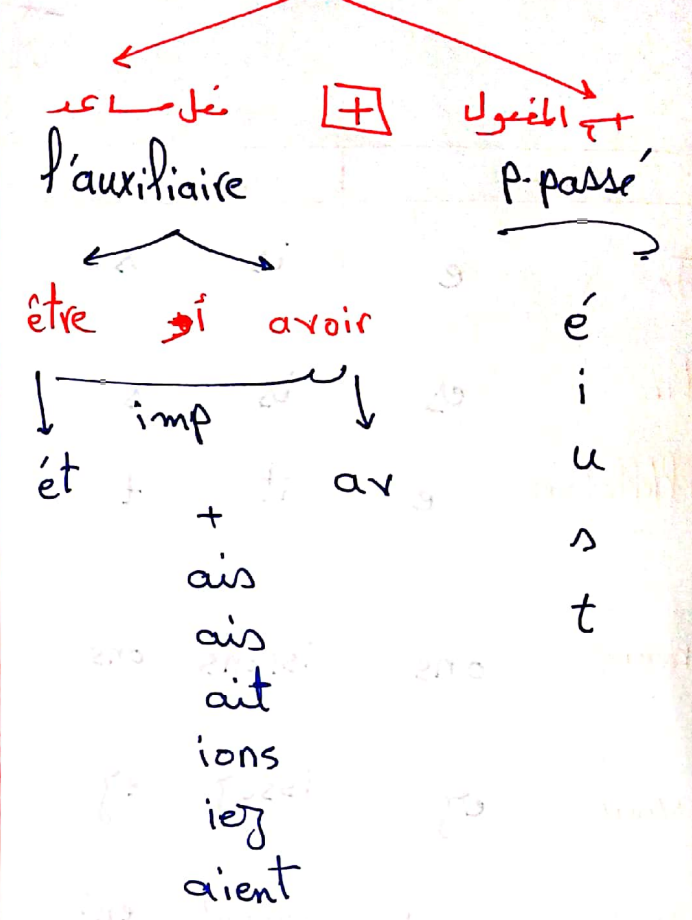 فعل مساعد + ج المفعول
l'auxiliaire p.passé
être أو avoir
imp
ét av
+
ais
ais
ait
ions
iez
aient
é
i
u
s
t